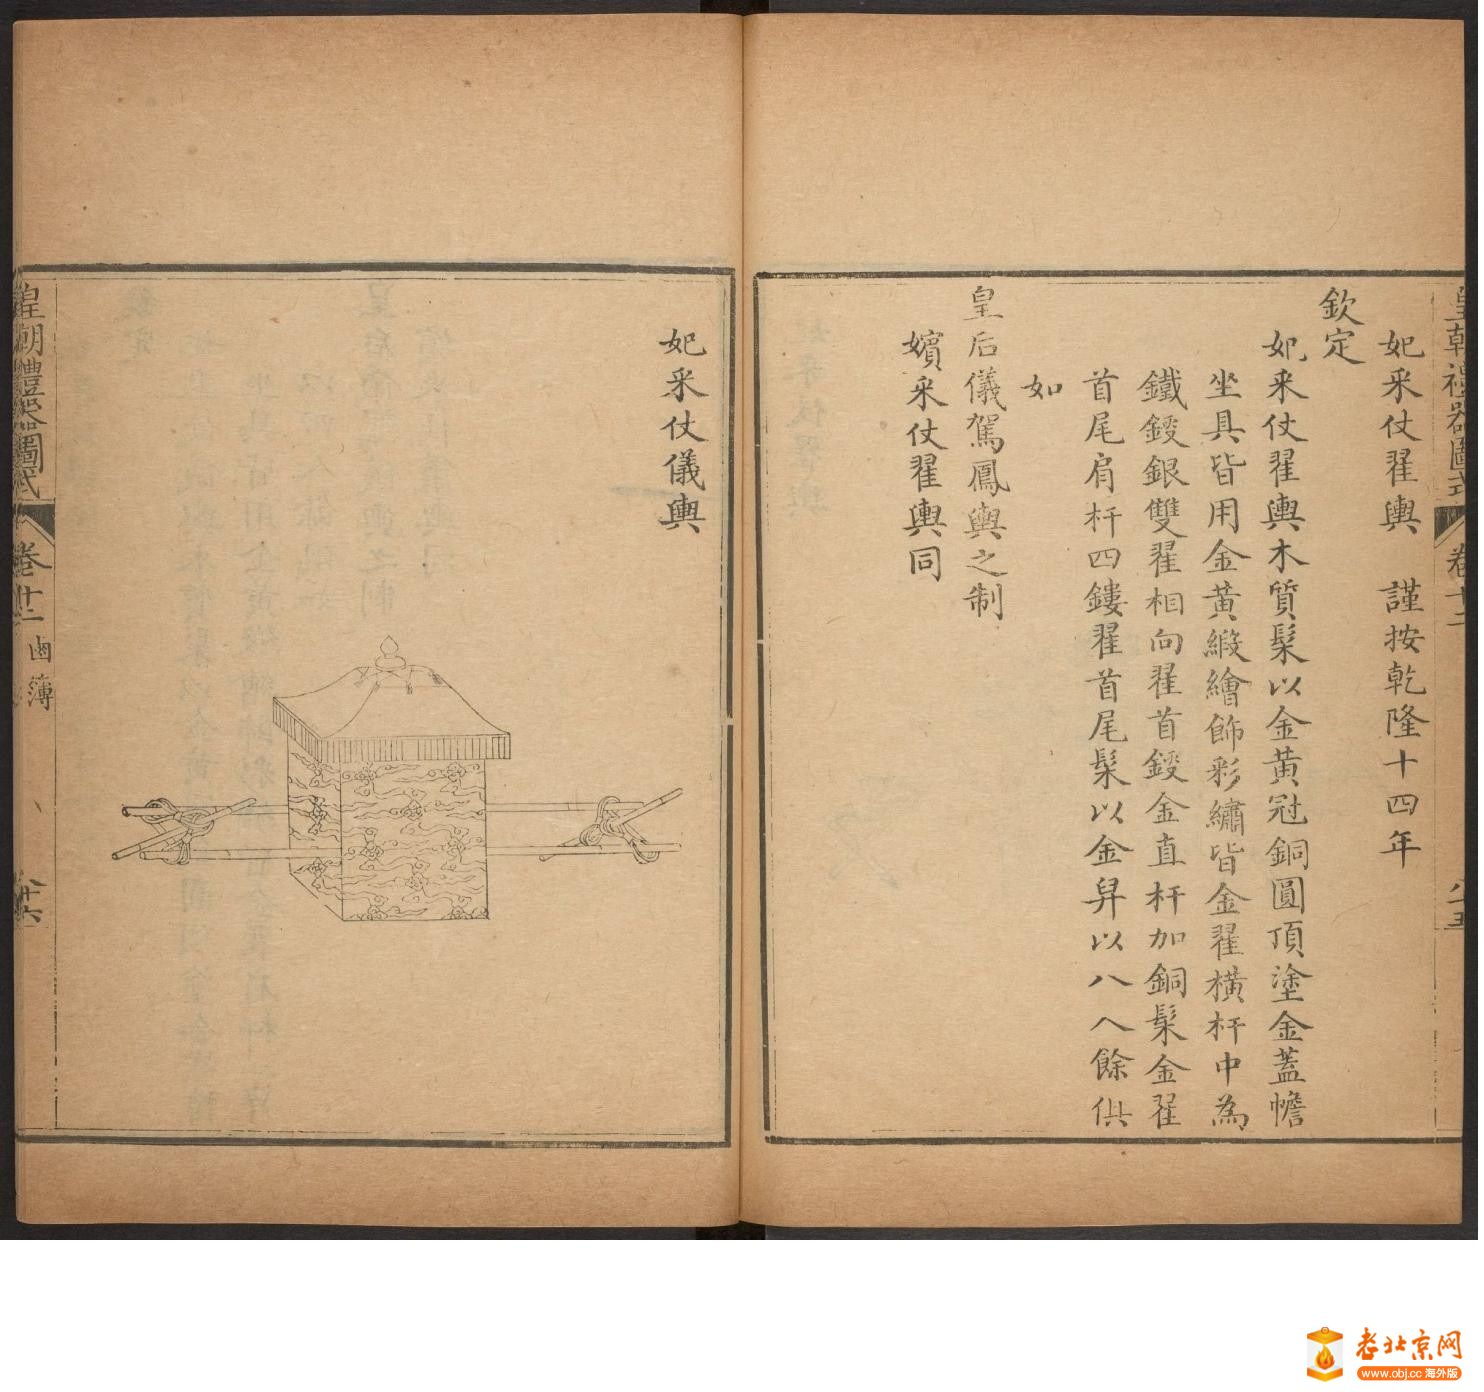 皇朝禮器圖式 卷十二 八十五
妃采仗翟輿 謹按乾隆十四年
欽定
妃采仗翟輿木質髹以金黃冠銅圓頂塗金蓋幨
坐具皆用金黃緞繪飾彩繡皆金翟橫杆中為
鐵鋄銀雙翟相向翟首鋄金直杆加銅髹金翟
首尾肩杆四鏤翟首尾髹以金舁以八人餘俱
如
皇后儀駕鳳輿之制
嬪采仗翟輿同
妃采仗儀輿
皇朝禮器圖式 卷十二 鹵簿 八十六
老北京网
www.obj.cc 海外版